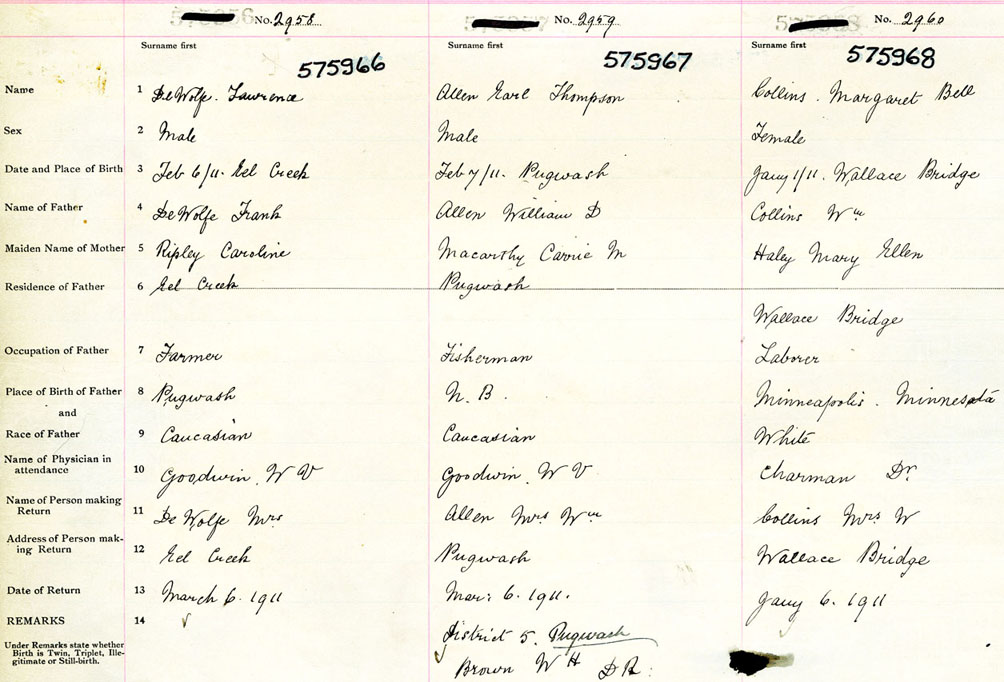 No. 2958 No. 2959 No. 2960
Surname first Surname first Surname first
575966 575967 575968
Name 1 DeWolfe. Lawrence Allen Earl Thompson Collins. Margaret Bell
Sex 2 Male Male Female
Date and Place of Birth 3 Feb 6/11. Eel Creek Feb 7/11. Pugwash Jany 1/11. Wallace Bridge
Name of Father 4 DeWolfe Frank Allen William D Collins Wm
Maiden Name of Mother 5 Ripley Caroline Macarthy Carrie M Haley Mary Ellen
Residence of Father 6 Eel Creek Pugwash
Wallace Bridge
Occupation of Father 7 Farmer Fisherman Laborer
Place of Birth of Father 8 Pugwash N. B. Minneapolis. Minnesota
and
Race of Father 9 Caucasian Caucasian White
Name of Physician in
attendance 10 Goodwin. W V Goodwin. W V. Charman Dr.
Name of Person making
Return 11 DeWolfe Mrs Allen Mrs Wm Collins Mrs W
Address of Person mak-
ing Return 12 Eel Creek Pugwash Wallace Bridge
Date of Return 13 March 6. 1911 Mar: 6. 1911. Jany 6. 1911
REMARKS 14
District 5. Pugwash
Under Remarks state whether
Birth is Twin, Triplet, Ille-
gitimate or Still-birth.
Brown W H D R: